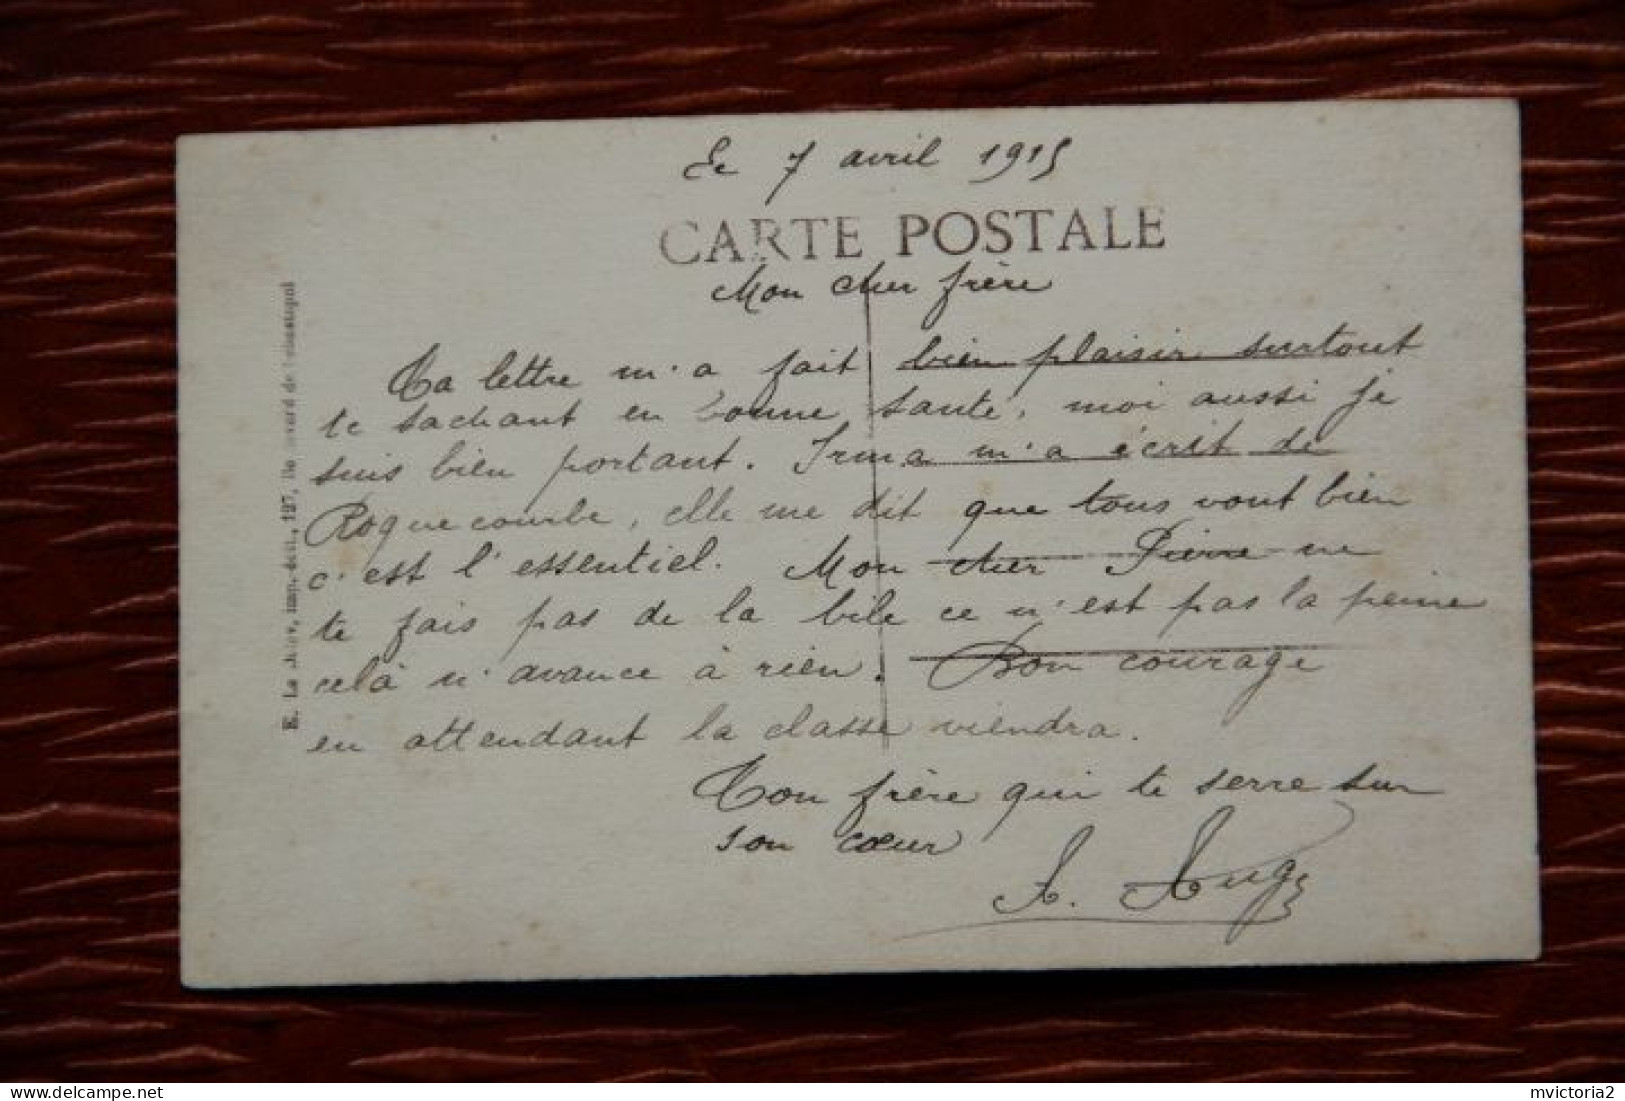 Le 7 avril 1915
CARTE POSTALE
Mon cher frère
Ta lettre m'a fait bien plaisir surtout
te sachant en bonne santé, moi aussi je
suis bien portant. Irma m'a écrit de
Roquecourbe, elle me dit que tous vont bien
c'est l'essentiel. Mon cher Pierre ne
te fais pas de la bile ce n'est pas la peine
celà n'avance à rien. Bon courage
en attendant la classe viendra.
Ton frère qui te serre sur
son cœur
A. Augé
E. Le imp. édit., 127, Boulevard de Sébastopol
mvictoria2